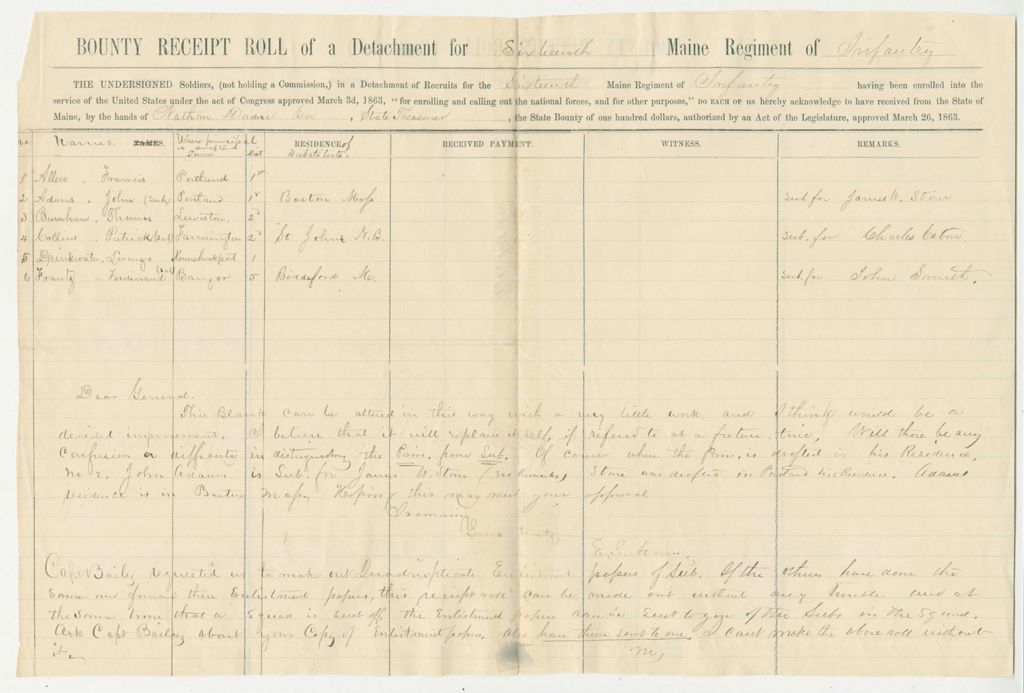 BOUNTY RECEIPT ROLL of a Detachment for Sixteenth Maine Regiment of Infantry
THE UNDERSIGNED Soldiers, (not holding a Commission,) in a Detachment of Recruits for the Sixteenth Maine Regiment of Infantry having been enrolled into the
service of the United States under the act of Congress approved March 3d, 1863, "for enrolling and calling out the national forces, and for other purposes," DO EACH OF us hereby acknowledge to have received from the State of
Maine, by the hands of Nathan Dane Esq , State Treasurer , the State Bounty of one hundred dollars, authorized by an Act of the Legislature, approved March 26, 1863.
No Names. NAMES. Where principal is drafted Town Dist RESIDENCE of Substitute. RECEIVED PAYMENT. WITNESS. REMARKS.
1 Allen . Francis Portland 1st
2 Adams . John (Sub) Portland 1st Boston Mass sub for James W. Stone
3 Burnham . Thomas Lewiston 2d
4 Collins . Patrick (sub) Farmington 2d St Johns N.B. sub. for Charles Eaton
5 Drinkwater, Kennebunkport 1
6 Frantz . Ferdinand (sub) Bangor 5 Biddeford Me. sub. for John Smith.
Dear General.
This Blank can be altered in this way with a very little work, and I think would be a
decided improvement. I believe that it will explain itself, if referred to at a future time, Will there be any
Confusion or difficulty in distinguishing the Prin. from Sub. Of course when the Prin. is drafted is his Residence,
No 2. John Adams is Sub. for James W. Stone (see Remarks) Stone was drafted in Portland his Residence. Adams
residence is in Boston Mass. Hoping this may meet your approval
I remain
Capt Bailey requested us to make out Quadruplicate Enlistment papers of Sub. If the others have done the
same and former three Enlistment papers, this receipt roll can be made out without any trouble and at
the same time that a Squad is sent off, the Enlistment papers can be sent to you of the Subs in the Squad.
Ask Capt Bailey about your Copy of Enlistment papers. Also have them sent to me I cant make the above roll without
it.